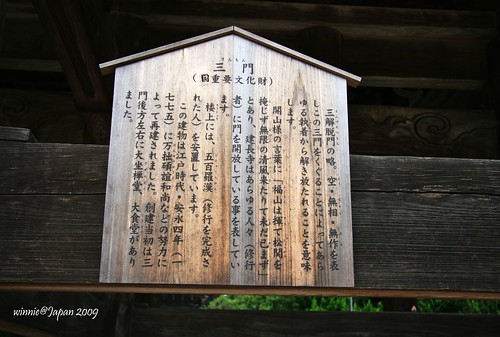 三門
さんもん
（国重要文化財）
三解脱門の略、空・無相・無作を表
しこの三門をくぐることによってあら
ゆる執着から解き放たれることを意味
します。
開山様の言葉に「福山は揮て松関を
掩じず無限の清風来たりて未だ已まず」
とあり、建長寺はあらゆる人々（修行
者）に門を開放している事を表してい
ます。
楼上には、五百羅漢（修行を完成さ
れた人）を安置しています。
この建物は江戸時代・安永四年（一
七七五）に万拙碩誼和尚などの努力に
よって再建されました。創建当初は三
門後方左右に大坐禅堂、大食堂があり
ました。
winnie@Japan 2009